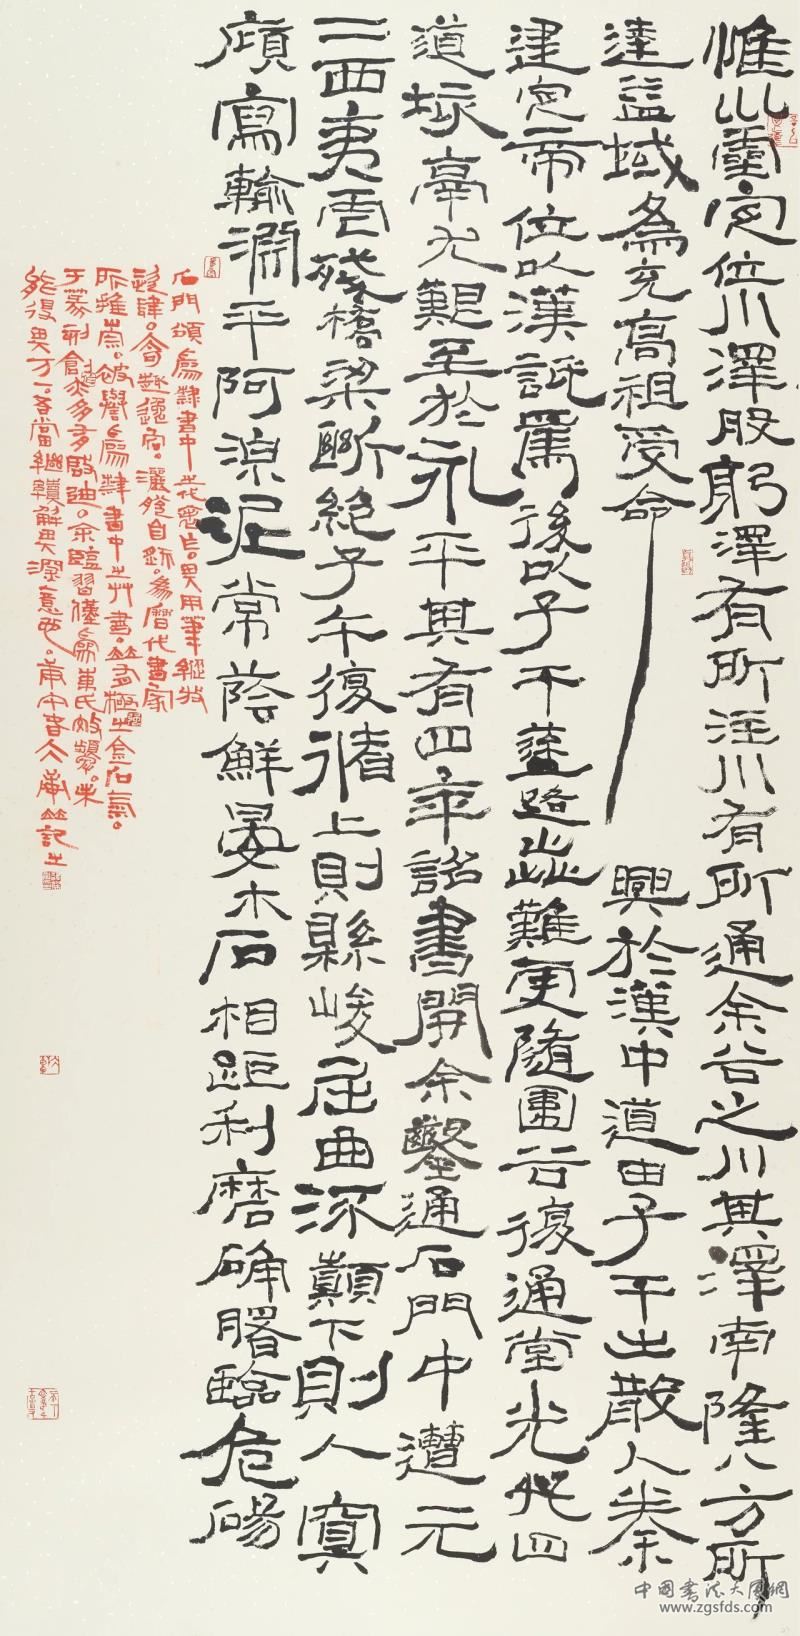 惟巛靈定位川澤股躬澤有所注川有所通余谷之川其澤南隆八方所
達益域為充高祖受命興於漢中道由子午出散入秦
建定帝位以漢詆焉後以子午塗路歮難更隨圍谷復通堂光凡此四
道垓鬲尤艱至於永平其有四年詔書開余鑿通石門中遭元
二西夷虐殘橋梁斷絕子午復循上則縣峻屈曲流顛下則入寞
廎寫輸淵平阿淖泥常蔭鮮晏木石相距利磨确磐臨危
石門頌為隸書中代表作。其用筆縱放
超肆。奇趣逸宕。灑脫自然。為歷代書家
所推崇。被譽為隸書中之草書。
于篆刻創作多多啟迪。余臨習僅為東氏效顰。未
能得其万一。吾當繼續解其深意也。
中国书法大展网
www.zgsfds.com